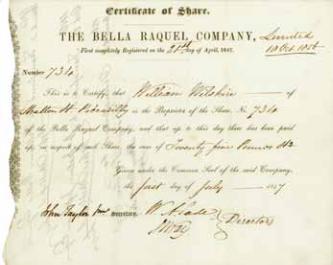 Certificate of Share.
THE BELLA RAQUEL COMPANY, Limited
First completely Registered on the 28th day of April, 1847.
Number 734
This is to Certify, that William Wilshire of
Stratton St Piccadilly is the Proprietor of the Share, No. 734
of the Bella Raquel Company, and that up to this day there has been paid
up, in respect of such Share, the sum of Twenty five Pounds
Given under the Common Seal of the said Company,
the first day of July 1847
John Taylor Jun SECRETARY.
Directors